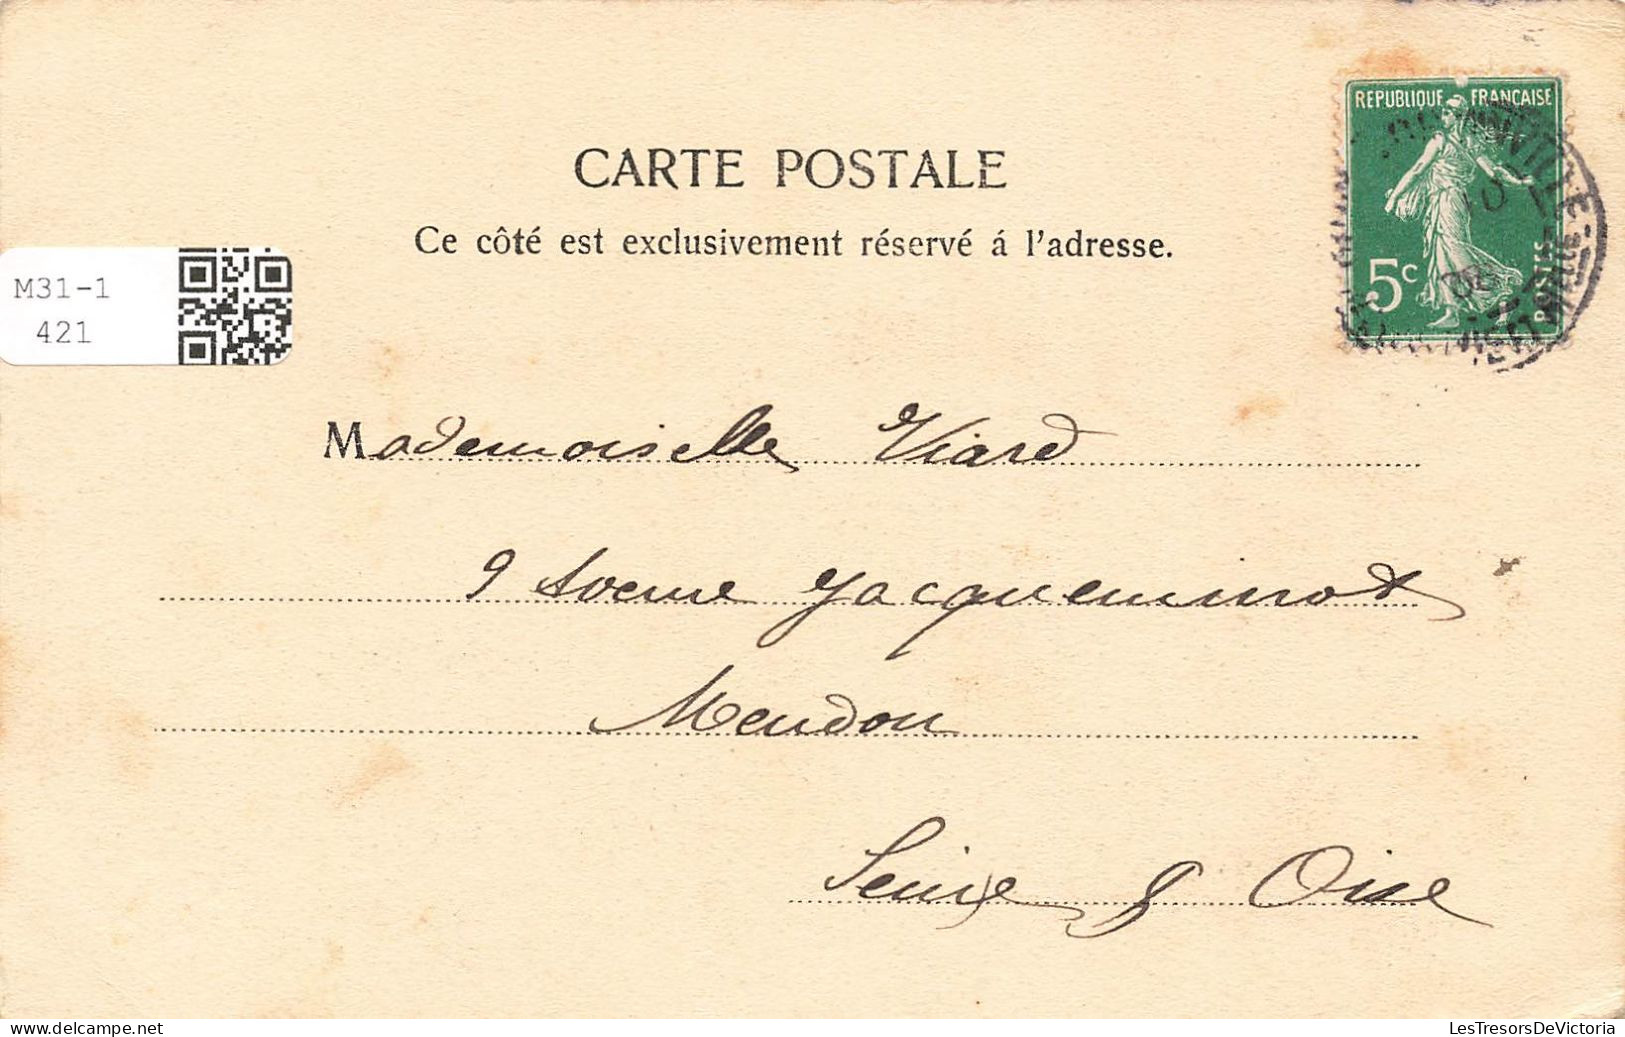 REPUBLIQUE FRANCAISE
5c
POSTES
CARTE POSTALE
Ce côté est exclusivement réservé á l'adresse.
M31-1
421
Mademoiselle Viard
9 Avenue Jacqueminot
Meudon
Seine & Oise
Delcampe.net
LesTresorsDeVictoria